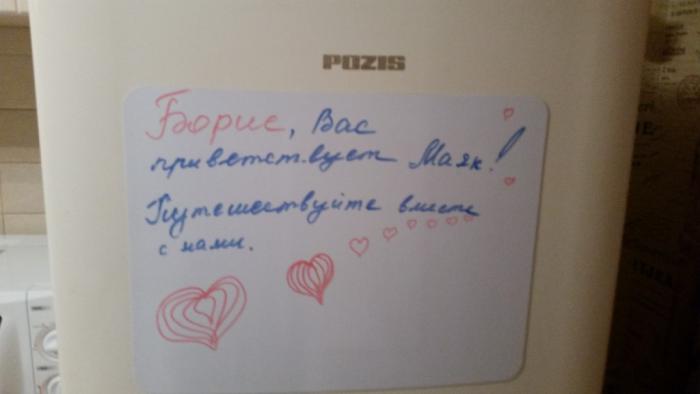 POZIS
Борис, Вас
приветствует Маяк!
Путешествуйте вместе
с нами.